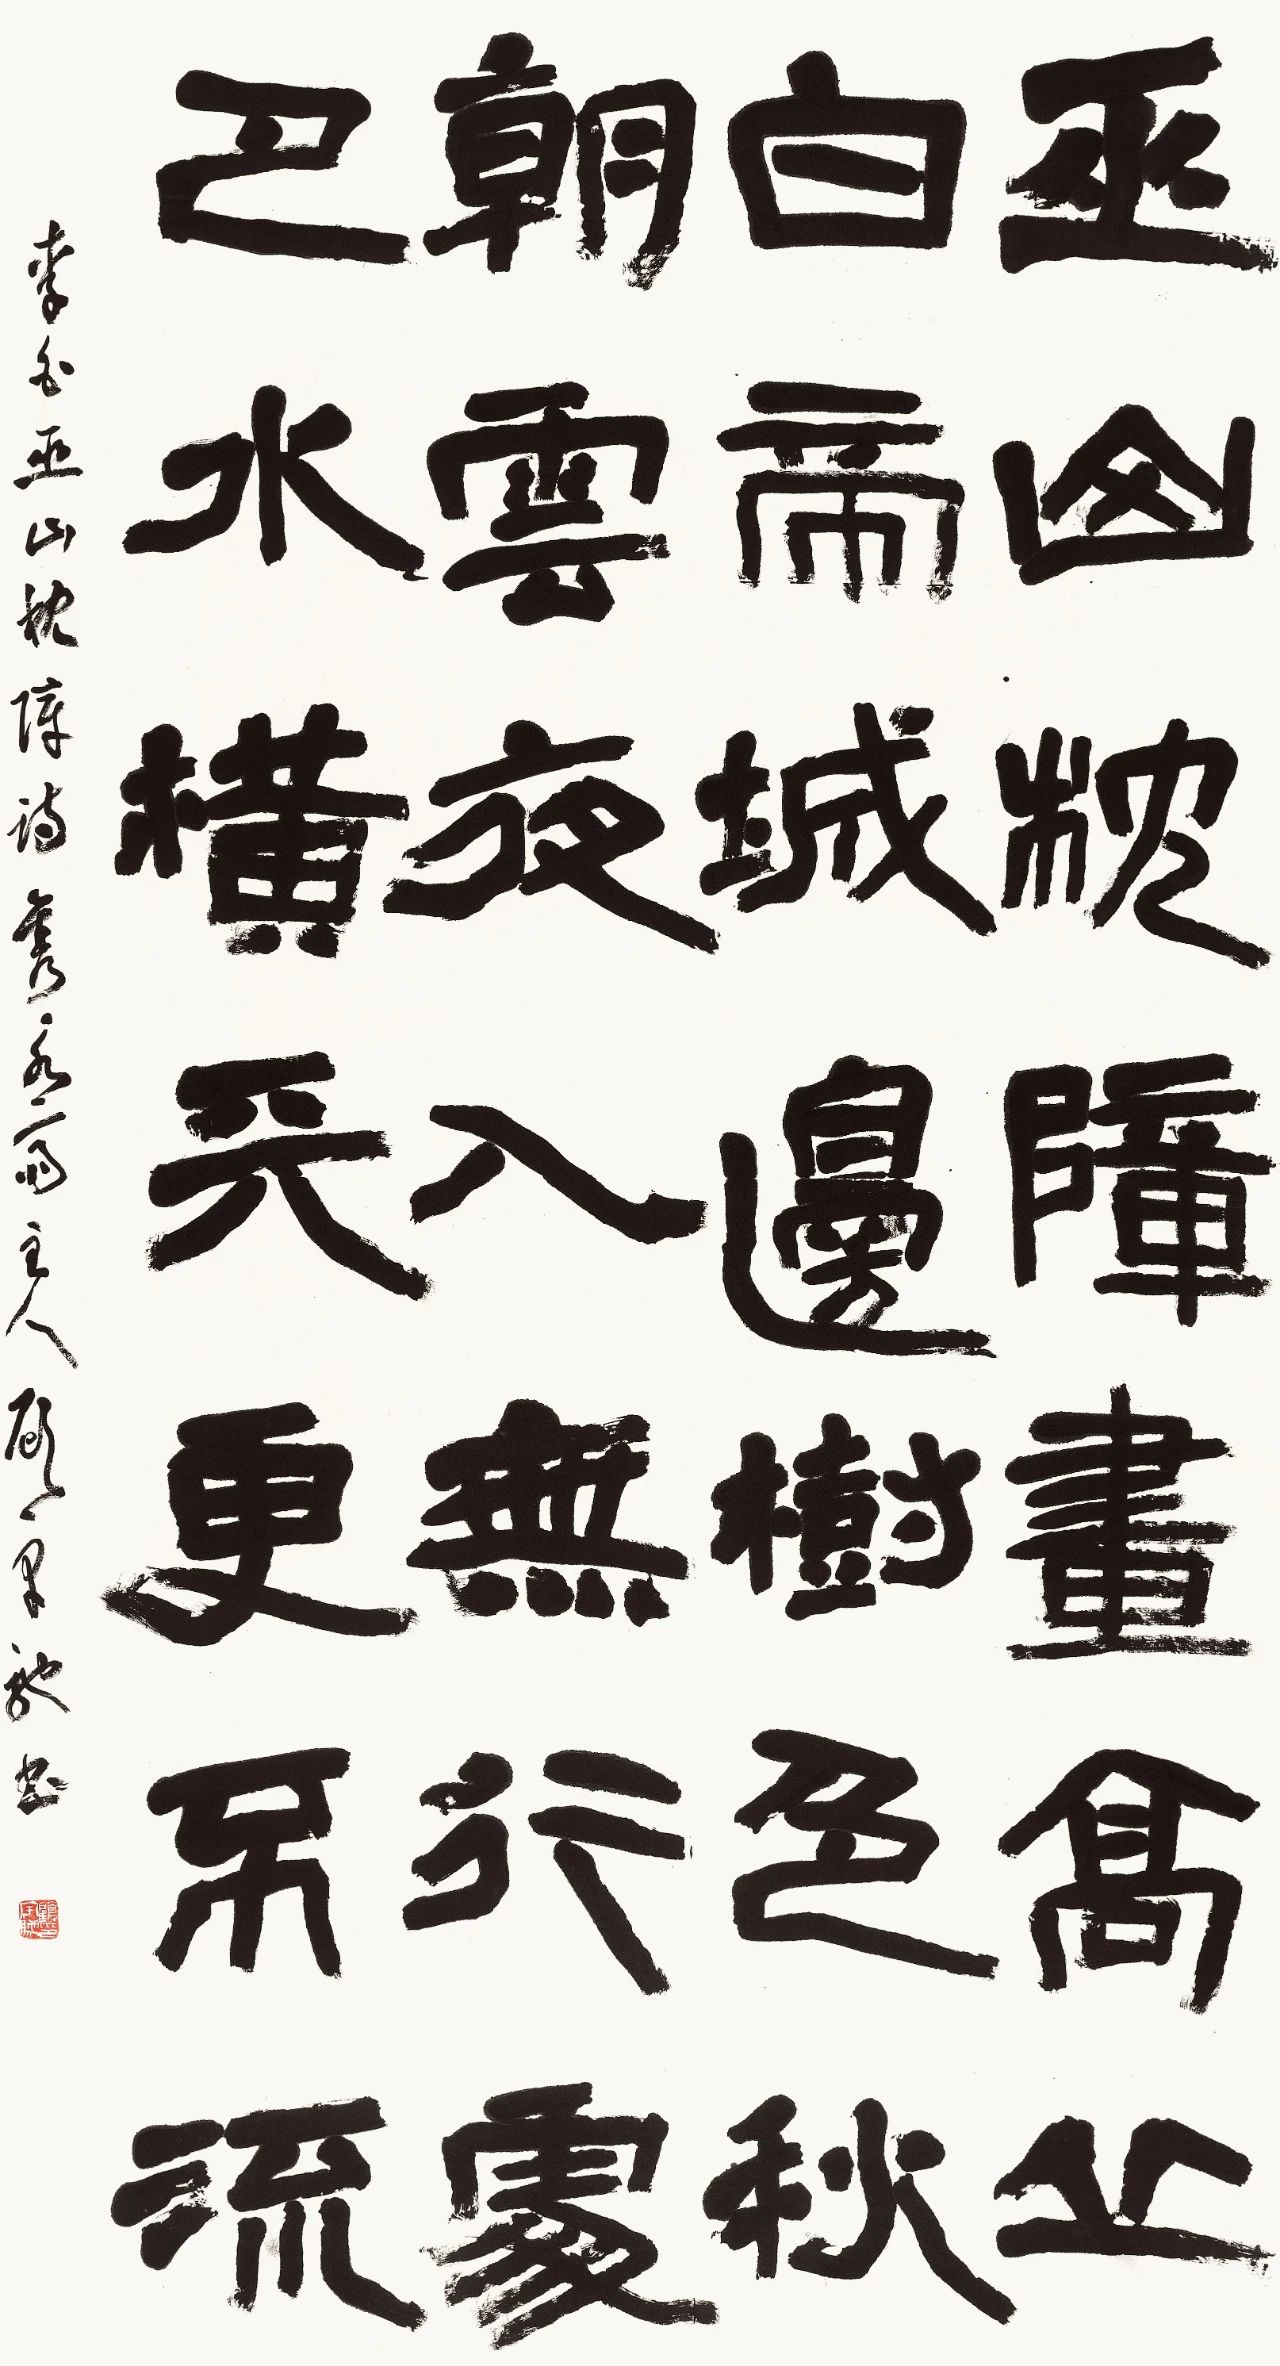 巫山枕障畫高丘
白帝城邊樹色秋
朝雲夜入無行處
巴水橫天更不流
李白巫山枕障詩雋永齋主人顧亞龍書